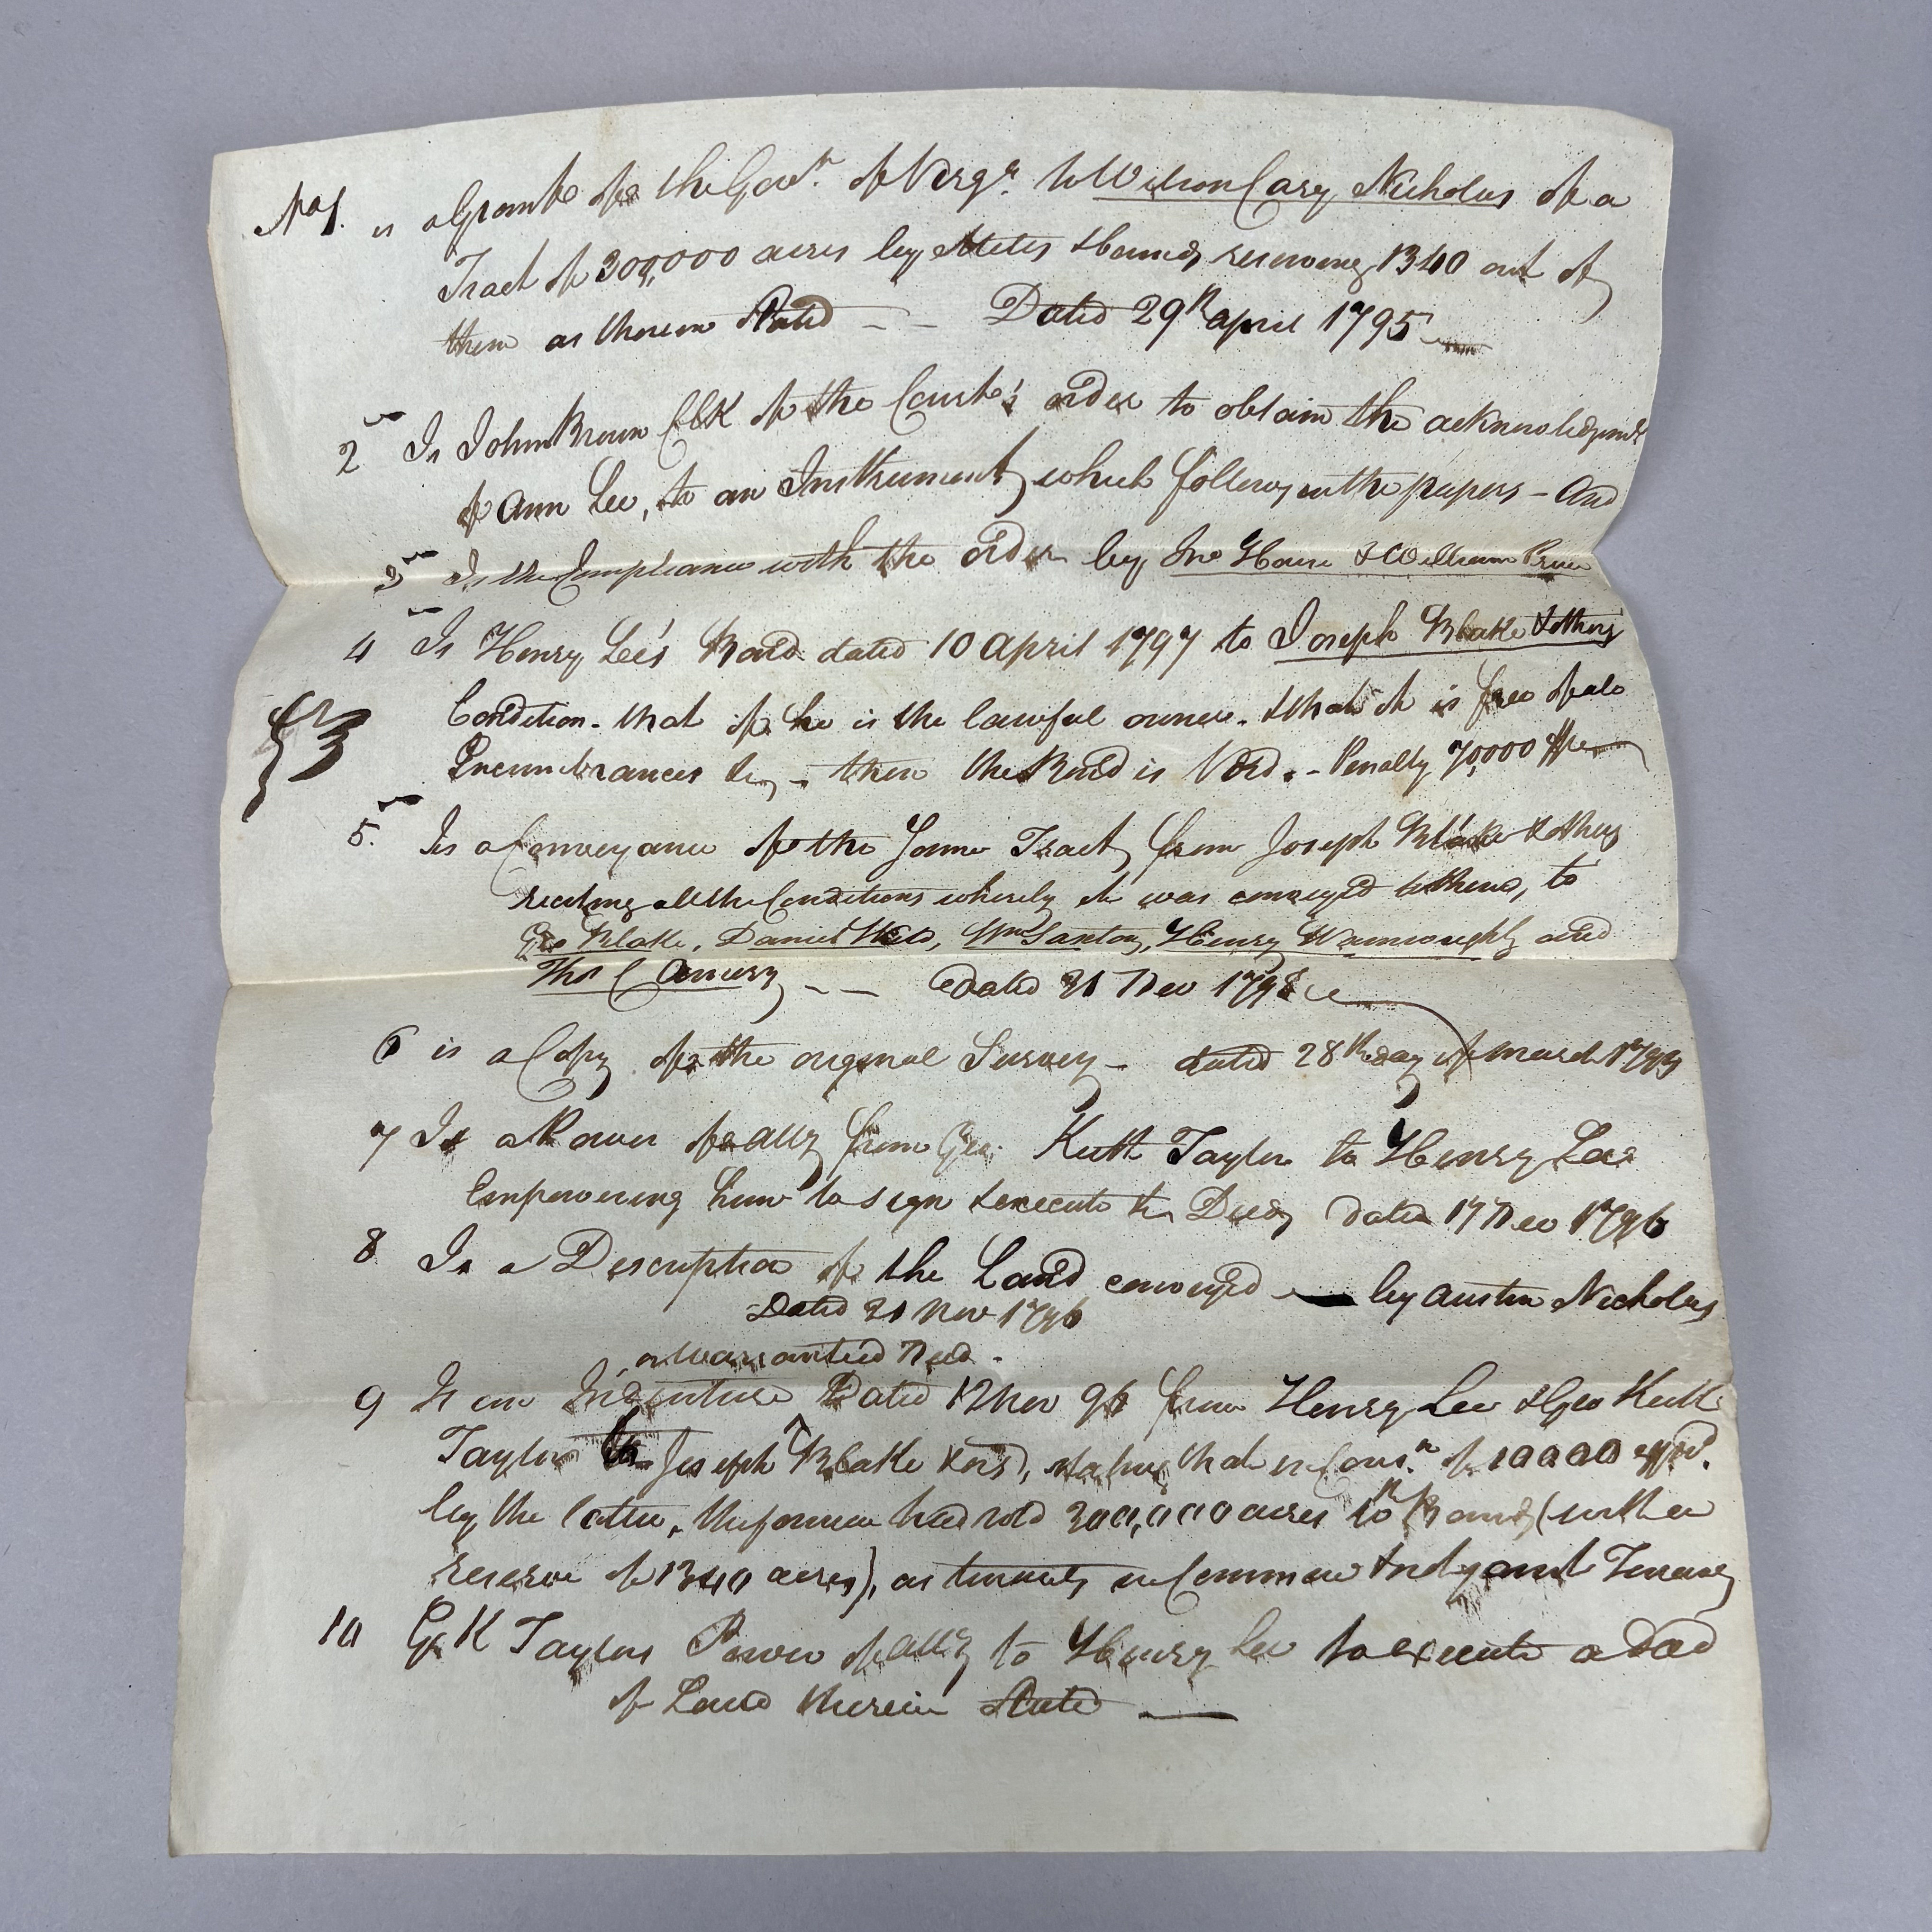 No 1. is a Grant of the Govr. of Virga. to Wilson Cary Nicholas of a
Tract of 300,000 acres by Metes & bounds, reserving 1340 out of
them as therein Stated - - Dated 29th april 1795
2 Is John Brown Clk of the Court's order to obtain the acknowledgment
of Ann Lee, to an Instrument, which follows in the papers - And
3 Is the Compliance with the order by Jno & William
4 Is Henry Lee's Bond dated 10 April 1797 to Joseph Blake & others
Condition - that if he is the lawful owner - & that it is free of all
Incumbrances &c, - then the Bond is Void. - Penalty 70,000
5. Is a Conveyance of the same Tract, from Joseph Blake & others
reciting all the Conditions whereby it was conveyed to them, to
Geo Blake, Daniel Wild, Wm Saxton, Henry Wainwright, and
Thos C Amory - - dated 31 Dec 1798
6 is a Copy of the original Survey - dated 28th day of March 1795
7 Is a Power of atty from Geo. Keith Taylor to Henry Lee
Empowering him to sign & execute the Deed, dated 17 Dec 1796
8 Is a Description of the Land conveyed by Austin Nicholas
Dated 21 Nov 1796
a warranted Deed -
9 Is an Indenture Dated 12 Nov 96 from Henry Lee & Geo Keith
Taylor to Joseph Blake &ors, stating that in Consn. of 10000 pd.
by the latter, the former had sold 300,000 acres to B and (with a
reserve of 1340 acres), as tenants in Common & not joint Tenancy
10 G K Taylors Power of atty to Henry Lee to execute a Deed
of Land therein Stated